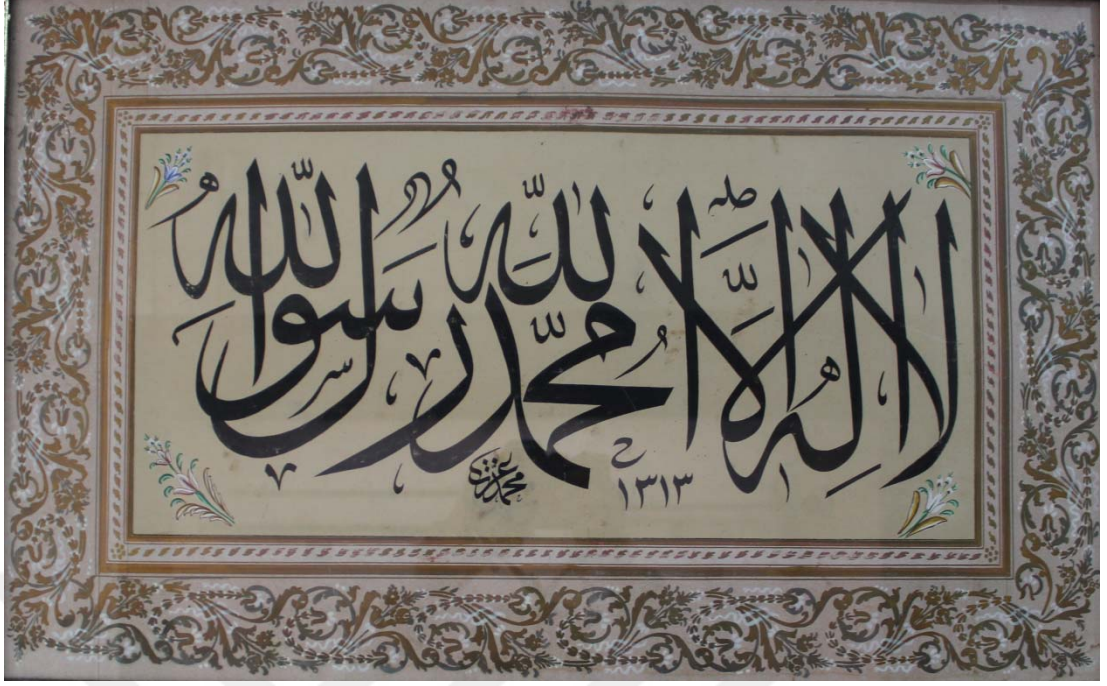 لا اله الا الله محمد رسول الله
محمد عزت
١٣١٣